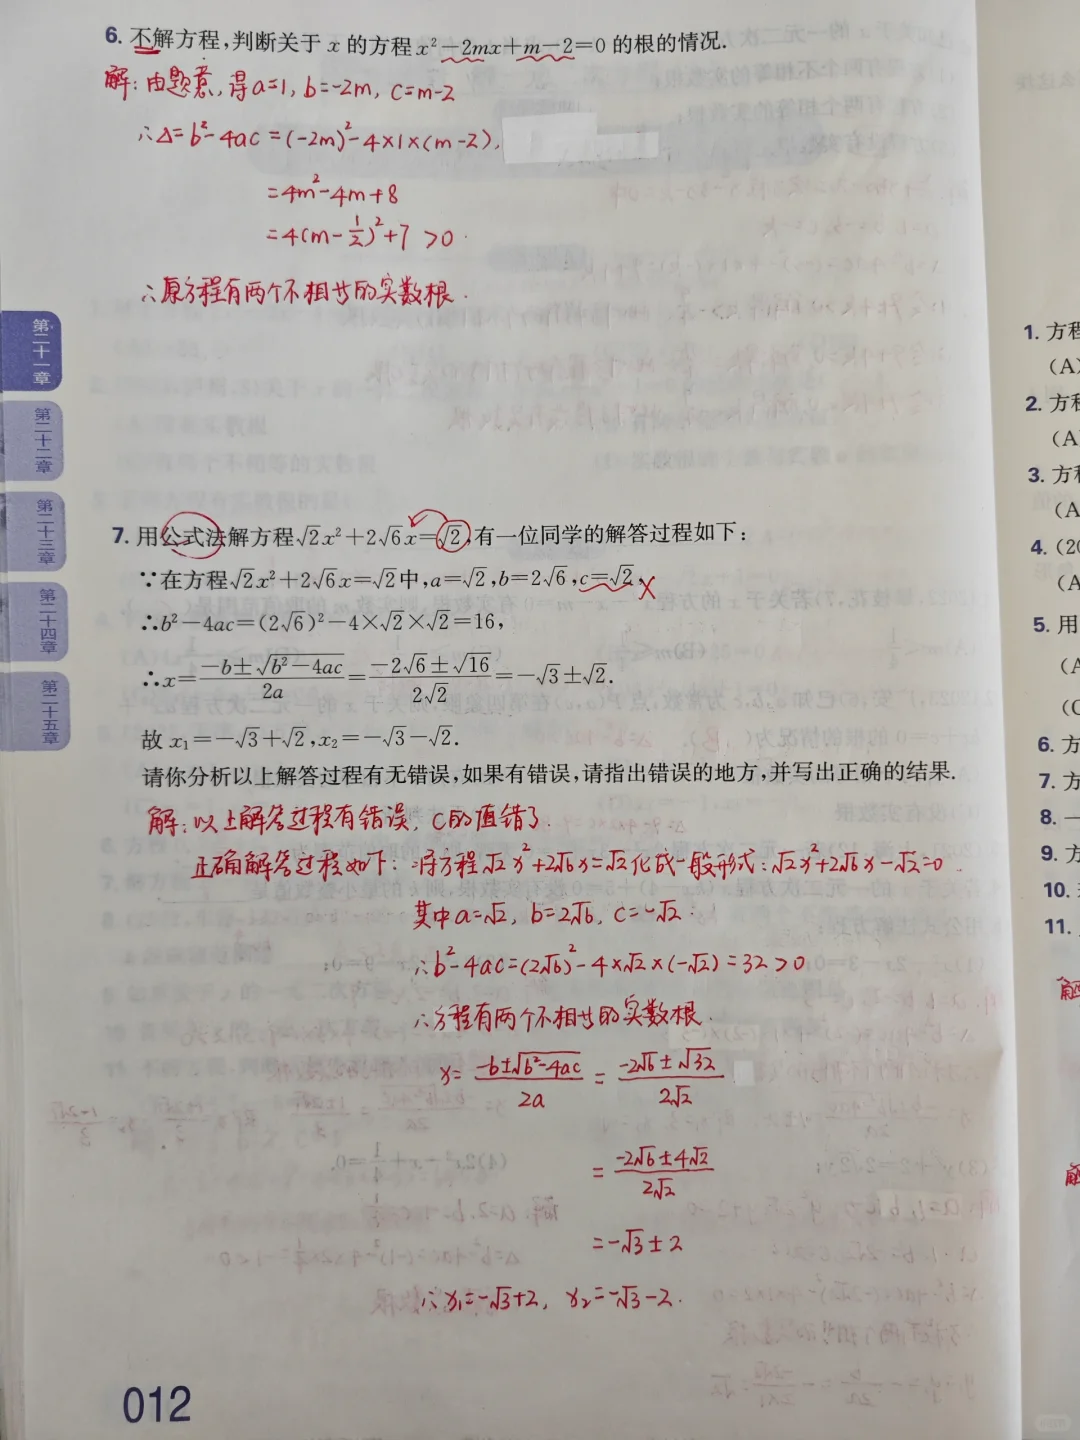 6. 不解方程,判断关于 x 的方程 x²-2mx+m-2=0 的根的情况.
解:由题意,得a=1, b=-2m, c=m-2
∴Δ=b²-4ac=(-2m)²-4×1×(m-2),
=4m²-4m+8
=4(m-1/2)²+7 >0.
∴原方程有两个不相等的实数根.
第二十一章
第二十二章
第二十三章
第二十四章
第二十五章
7. 用公式法解方程√2x²+2√6x=√2,有一位同学的解答过程如下:
∵在方程√2x²+2√6x=√2中,a=√2,b=2√6,c=√2, X
∴b²-4ac=(2√6)²-4×√2×√2=16,
∴x=(-b±√(b²-4ac))/2a=(-2√6±√16)/2√2=-√3±√2.
故 x₁=-√3+√2,x₂=-√3-√2.
请你分析以上解答过程有无错误,如果有错误,请指出错误的地方,并写出正确的结果.
解:以上解答过程有错误,C的值错了.
正确解答过程如下:将方程√2x²+2√6x=√2化成一般形式:√2x²+2√6x-√2=0.
其中a=√2, b=2√6, c=-√2.
∴b²-4ac=(2√6)²-4×√2×(-√2)=32>0
∴方程有两个不相等的实数根.
x=(-b±√(b²-4ac))/2a=(-2√6±√32)/2√2
=(-2√6±4√2)/2√2
=-√3±2
∴x₁=-√3+2, x₂=-√3-2.
012
1. 方程
(A)
2. 方程
(A
3. 方程
(A
4. (20
(A
5. 用
(A
(C
6. 方
7. 方
8. 一
9. 方
10.
11.
解
解